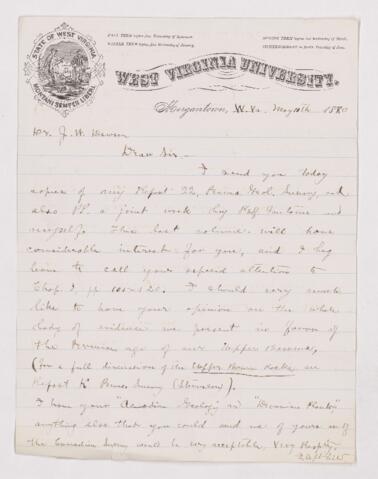 STATE OF WEST VIRGINIA
MONTANI SEMPER LIBERI
FALL TERM
WINTER TERM
SPRING TERM
COMMENCEMENT
WEST VIRGINIA UNIVERSITY.
Morgantown, W. Va. May 10th 1880
Dr. J. W. Dawson
Dear Sir.
I send you today
copies of my Report
also PP. a joint work by Prof. Fontaine and
myself. This last volume will have
considerable interest for you, and I beg
leave to call your especial attention to
Chap. I, pp 105-120. I should very much
like to have your opinion on the whole
body of evidence we present in favor of
the Permian age of our Upper Barrens,
(for a full discussion of the Upper Barren Rocks see
Report K Penna. Survey (Stevenson).
I have your "Canadian Geology" and "Devonian Plants"
anything else that you could send me of yours or of
the Canadian Survey would be very acceptable. Very Resp'y